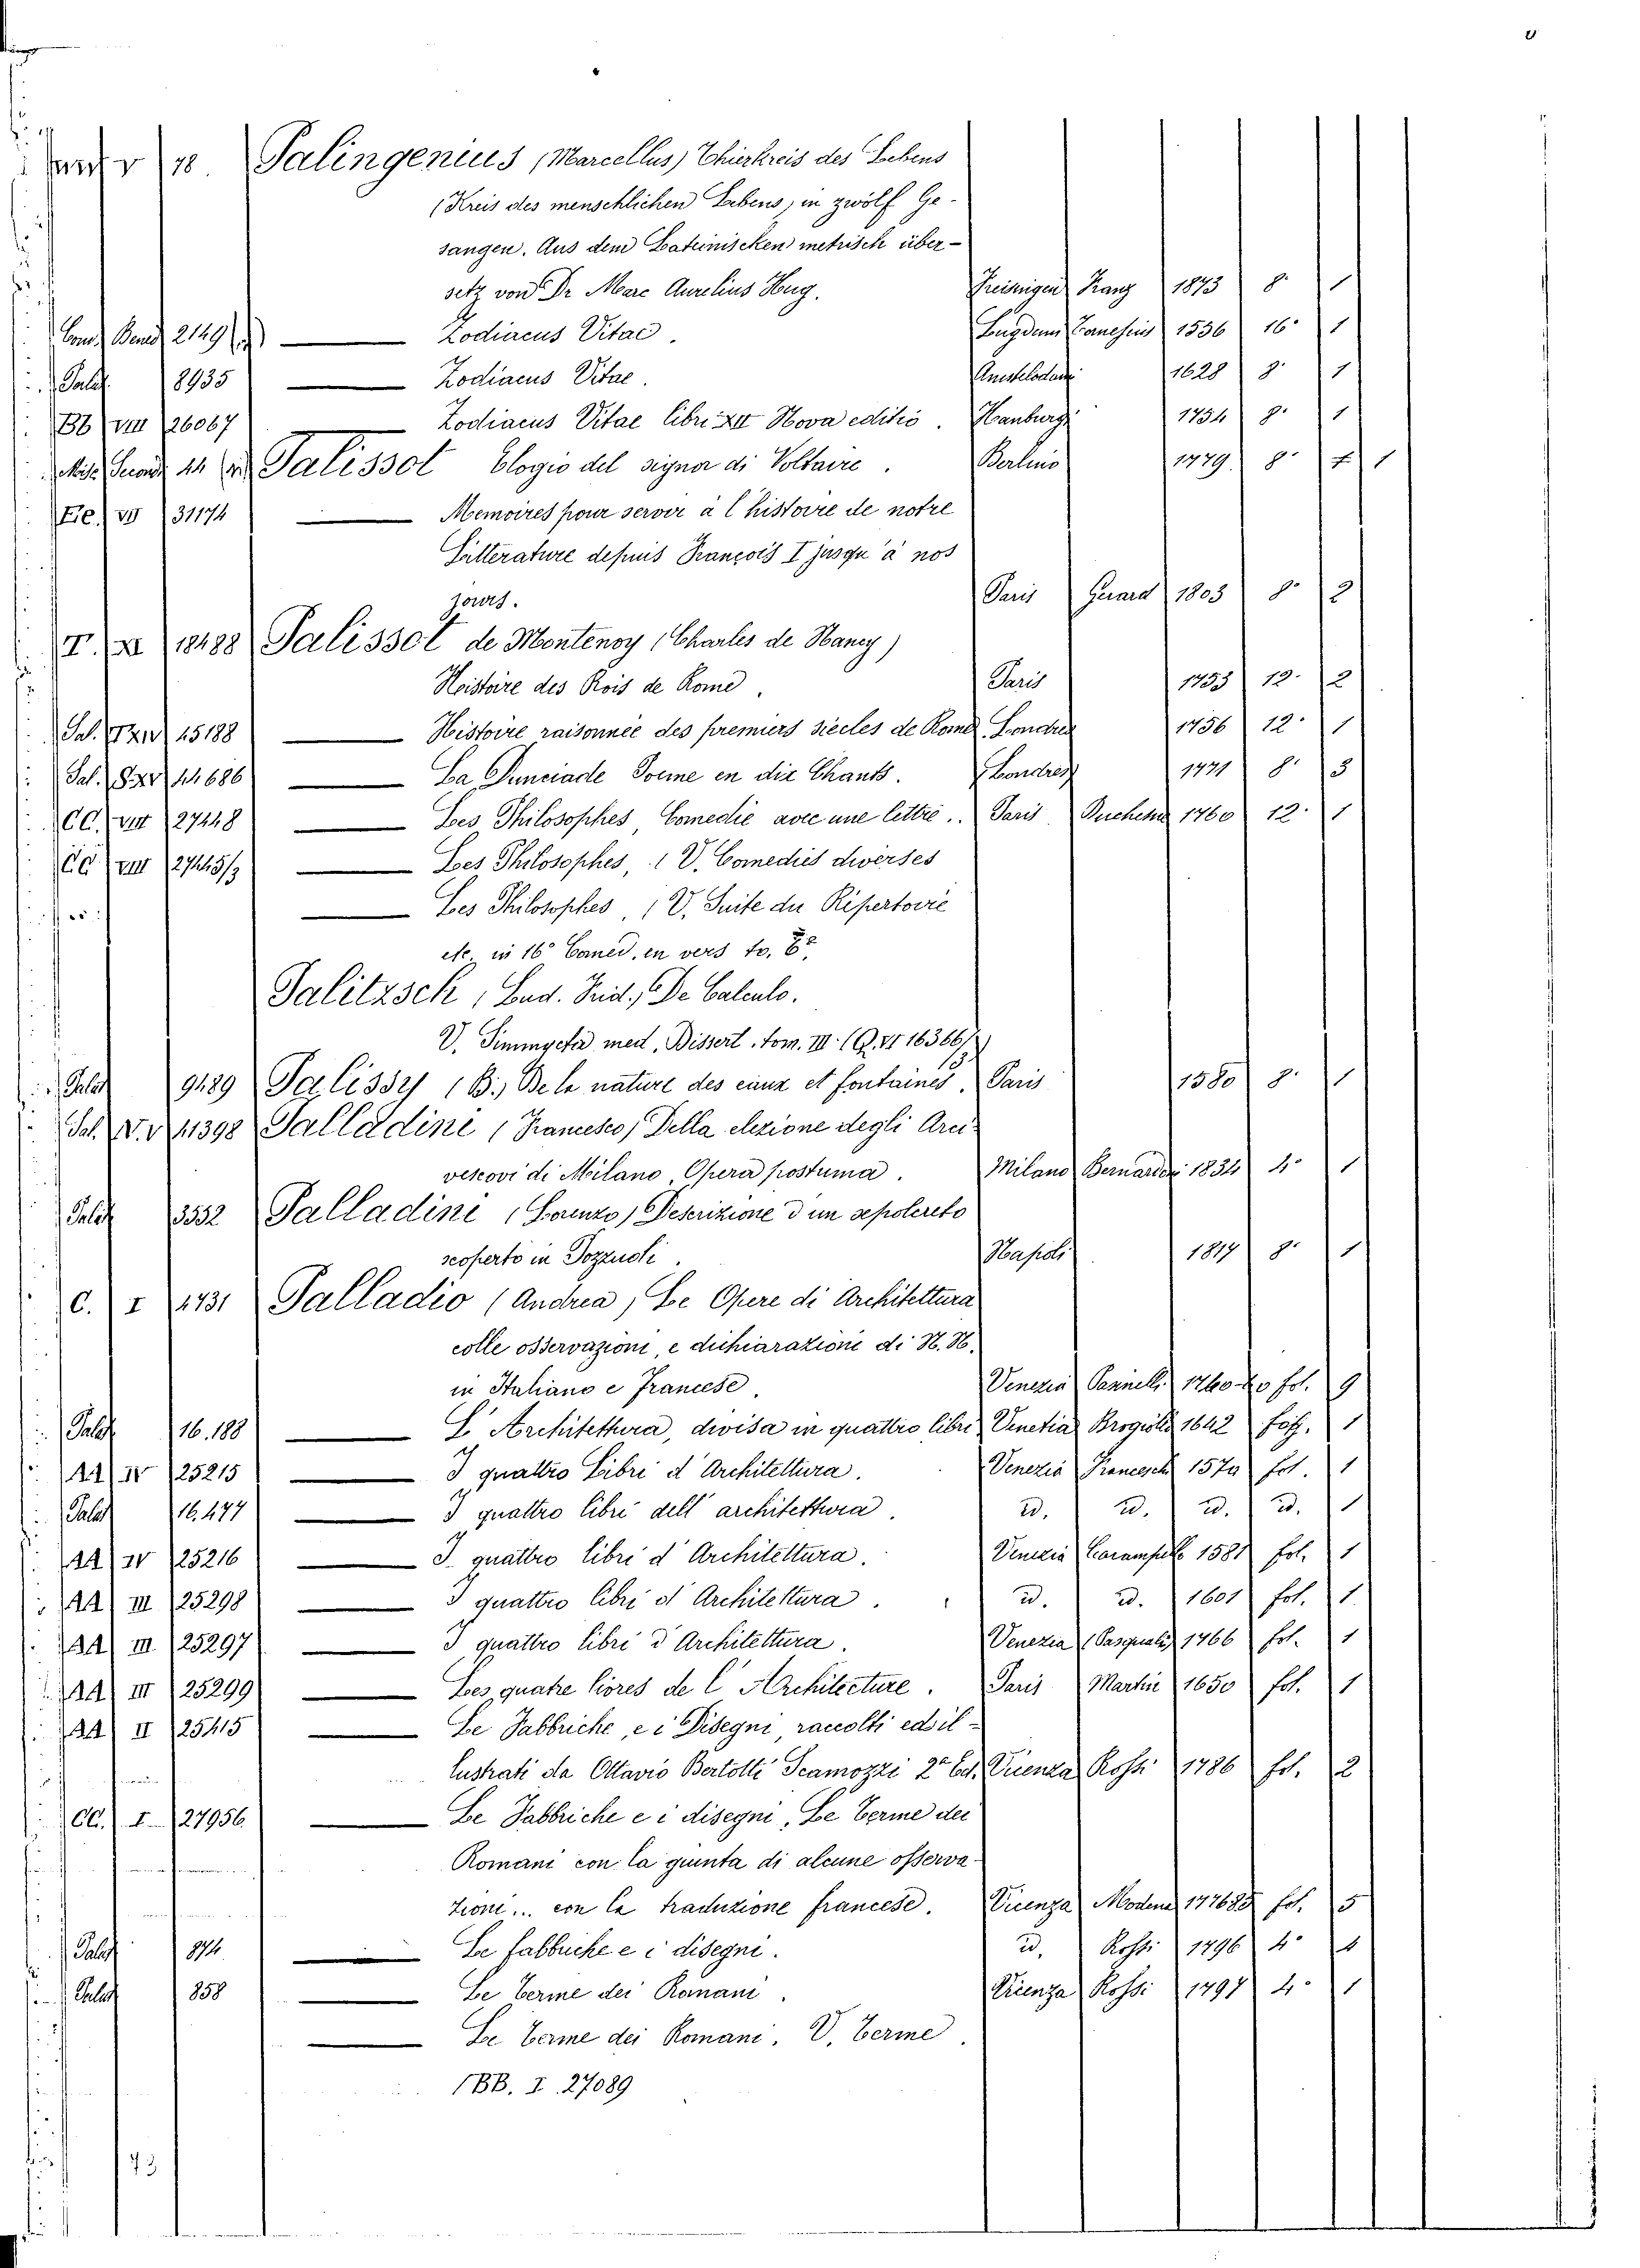 18. Palingenius (Marcellus) Thierkreis des Lebens
(Kreis des menschlichen Lebens) in zwölf Ge-
sangen. Aus dem Lateinischen metrisch über-
setz von Dr Marc Aurelius Hug. 1873 8° 1
2149 — Zodiacus Vitae. 1536 16° 1
Palat 8935 — Zodiacus Vitae. 1628 8° 1
Bb VIII 26067 — Zodiacus Vitae libri XII Nova editio. Hanburgi 1754 8° 1
Palissot Elogio del signor di Voltaire. Berlino 1779 8° 1
Ee. VII 31174 — Memoires pour servir à l'histoire de notre
Litterature depuis François I jusqu'à nos
jours. Paris 1803 8° 2
T. XI 18488 Palissot de Montenoy (Charles de Nancy)
Histoire des Rois de Rome. Paris 1753 12° 2
Pal. 15188 — Histoire raisonnée des premiers siecles de Rome Londres 1756 12° 1
Pal. S.XV 14686 — La Dunciade Poeme en dix Chants. Londres 1771 8° 3
CC. VIII 27448 — Les Philosophes Comedie avec une lettre.. Paris Duchesne 1760 12° 1
CC VIII 27445/3 — Les Philosophes, (V. Comedies diverses
— Les Philosophes, (V. Suite du Repertoire
etc. in 16° Comed. en vers to. 8°.
Palitzsch, De Calculo.
med. Dissert. tom. III. (Q. VI 16366/3)
Palat 9489 Palissy (B.) De la nature des eaux et fontaines. Paris 1580 8° 1
Pal. V.V 11398 Palladini (Francesco) Della elezione degli Arci-
vescovi di Milano, Opera postuma. Milano 1834 4° 1
Palat 3552 Palladini (Lorenzo) Descrizione d'un sepolcreto
scoperto in Pozzuoli. Napoli 1817 8° 1
C. I 4731 Palladio (Andrea) Le Opere di Architettura
colle osservazioni, e dichiarazioni di N. N.
in Italiano e Francese. Venezia fol. 9
Palat 16.188 — L'Architettura, divisa in quattro libri Venetia 1642 fol. 1
AA IV 25215 — I quattro Libri d'Architettura. Venezia Francesch 1570 fol. 1
Palat 16.477 — I quattro libri dell'architettura. id. id. id. id. 1
AA IV 25216 — I. quattro libri d'Architettura. Venezia 1581 fol. 1
AA III 25298 — I quattro libri d'Architettura. id. id. 1601 fol. 1
AA III 25297 — I quattro libri d'Architettura. Venezia Pasquali 1766 fol. 1
AA III 25299 — Les quatre livres de l'Architecture. Paris Martin 1650 fol. 1
AA II 25415 — Le Fabbriche, e i Disegni, raccolti ed il-
lustrati da Ottavio Bertotti Scamozzi 2a Ed. Vicenza Rossi 1786 fol. 2
CC. I 27956 — Le Fabbriche e i disegni, Le Terme dei
Romani con la giunta di alcune osserva-
zioni... con la traduzione francese. Vicenza Modena 177685 fol. 5
Palat 874 — Le fabbriche e i disegni. id. Rossi 1796 4° 4
Palat 858 — Le Terme dei Romani. Vicenza Rossi 1797 4° 1
— Le Terme dei Romani. V. Terme.
(BB. I. 27089
73